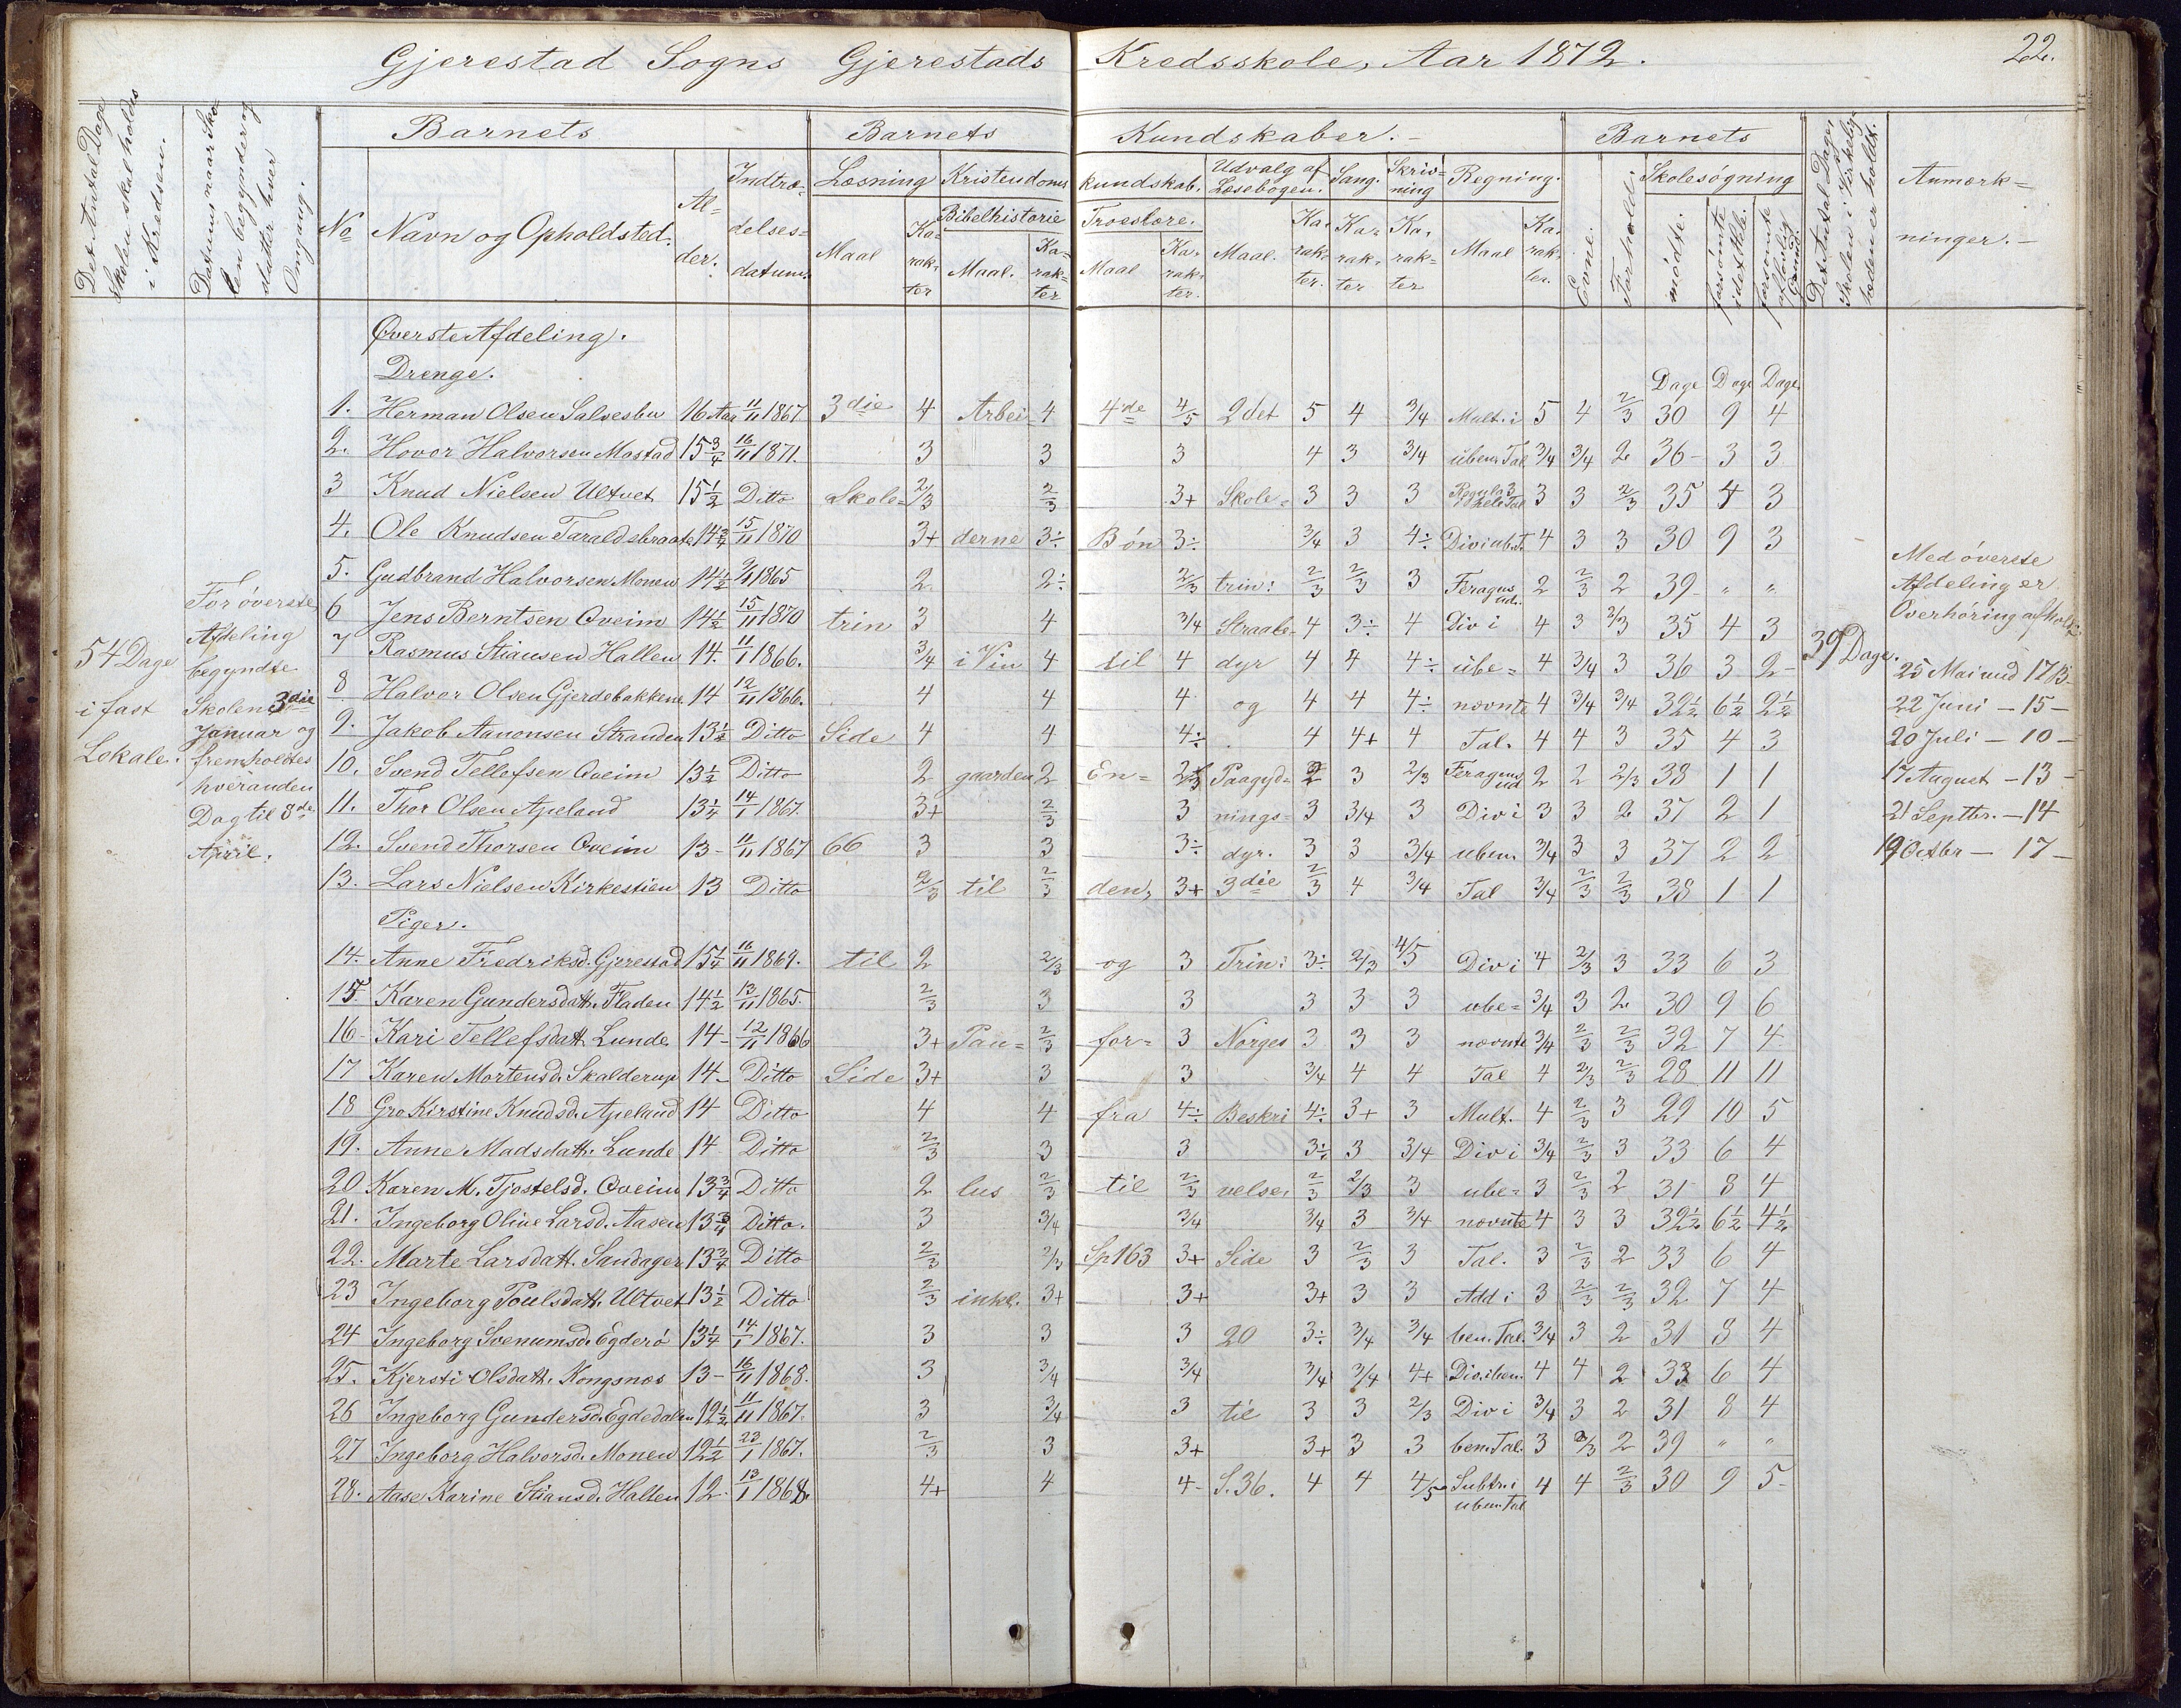 Gjerestad Sogns Gjerestads Kredsskole, Aar 1872.
22.
Det Antal Dage Skolen skal holdes i Kredsen.
Datum naar Skolen begynder og slutter hver Omgang.
Barnets
Barnets
Kundskaber.
Barnets
Det Antal Dage Skolen i Virkeligheden er holdt.
Anmærkninger.
No
Navn og Opholdsted.
Alder.
Indtrædelsesdatum.
Læsning
Kristendoms
kundskab.
Udvalg af Læsebogen.
Sang.
Skrivning
Regning.
Evne.
Forhold.
Skolesøgning
Maal
Karakter
Bibelhistorie
Maal.
Karakter
Troeslære.
Maal
Karakter.
Maal.
Karakter.
Karakter
Karakter
Maal
Karakter.
mødte.
forsømte i det Hele.
forsømte af lovlig Grund.
Øverste Afdeling.
Drenge.
Dage Dage Dage
1. Herman Olsen Salvesbu 16 Aar 11/11 1867. 3die 4 Arbei- 4 4de 4/5 2det 5 4 3/4 Mult. i 5 4 2/3 30 9 4
2. Hovor Halvorsen Mostad 15 3/4 16/11 1871. 3 3 3 4 3 3/4 uben. Tal 3/4 3/4 2 36 3 3
3 Knud Nielsen Ultvet 15 1/2 Ditto Skole= 2/3 2/3 3+ Skole- 3 3 3 Regula 3 i hele Tal 3 3 2/3 35 4 3
4. Ole Knudsen Taraldsbraate 14 3/4 15/11 1870 3+ derne 3÷ Bøn 3÷ 3/4 3 4÷ Div i ub. T. 4 3 3 30 9 3
5. Gudbrand Halvorsen Monen 14 1/2 9/11 1865 2 2÷ 2/3 trin: 2/3 2/3 3 Feragus ud. 2 2/3 2 39 " "
6 Jens Berntsen Qveim 14 1/2 15/11 1870 trin 3 4 3/4 Straale- 4 3÷ 4 Div i 4 3 2/3 35 4 3
7 Rasmus Stiansen Hallen 14. 11/1 1866. 3/4 i Vin 4 til 4 dyr 4 4 4÷ ube= 4 3/4 3 36 3 2
8 Halvor Olsen Gjerdebakkene 14 12/11 1866. 4 4 4 og 4 4 4÷ nævnte 4 3/4 3/4 32 1/2 6 1/2 2 1/2
9. Jakob Aanonsen Stranden 13 1/2 Ditto Side 4 4 4÷ 4 4+ 4 Tal. 4 4 3 35 4 3
10. Svend Tellefsen Qveim 13 1/2 Ditto 2 gaarden 2 En= 2/3 Paagyd= 2 3 2/3 Feragus ud 2 2 2/3 38 1 1
11. Thor Olsen Apeland 13 1/4 14/1 1867. 3+ 2/3 3 nings= 3 3/4 3 Div i 3 3 2 37 2 1
12. Svend Thorsen Qveim 13 11/11 1867 66 3 3 3÷ dyr. 3 3 3/4 uben. 3/4 3 3 37 2 2
13. Lars Nielsen Kirkestien 13 Ditto 2/3 til 2/3 den, 3+ 3die 2/3 4 3/4 Tal 3/4 2/3 2/3 38 1 1
Piger.
14. Anne Fredriksd. Gjerestad 15 1/4 16/11 1869. til 2 2/3 og 3 Trin: 3÷ 2/3 4/5 Div i 4 2/3 3 33 6 3
15. Karen Gundersdatt. Fladen 14 1/2 13/11 1865. 2/3 3 3 3 3 3 ube= 3/4 3 2 30 9 6
16 Kari Tellefsdatt. Lunde 14 12/11 1866 3+ Pau= 2/3 for= 3 Norges 3 3 3 nævnte 3/4 2/3 2/3 32 7 4
17 Karen Mortensd. Skalderup 14 Ditto Side 3+ 3 3 3/4 4 4 Tal 4 2/3 2/3 28 11 11
18 Gro Kirstine Knudsd. Apeland 14 Ditto 4 4 fra 4÷ Beskri 4÷ 3+ 3 Mult. 4 2/3 3 29 10 5
19. Anne Madsdatt. Lunde 14 Ditto 2/3 3 3 3÷ 3 3/4 Div i 3/4 2/3 3 33 6 4
20 Karen M. Tjostelsd. Qveim 13 3/4 Ditto 2 lus 2/3 til 2/3 velse, 2/3 2/3 3 ube= 3 2/3 2 31 8 4
21. Ingeborg Oline Larsd. Aasen 13 3/4 Ditto. 3 3/4 3/4 3/4 3 3/4 nævnte 4 3 3 32 1/2 6 1/2 4 1/2
22. Marte Larsdatt. Sandager 13 3/4 Ditto 2/3 2/3 Sp 163 3+ Side 3 2/3 3 Tal. 3 2/3 2 33 6 4
23 Ingeborg Poulsdatt. Ultvet 13 1/2 Ditto 2/3 inkl. 3+ 3+ 3+ 3 3 Add i 3 2/3 2/3 32 7 4
24 Ingeborg Svenumsd. Egderø 13 1/4 14/1 1867. 3 3 3 20 3÷ 3/4 3/4 ben. Tal. 3/4 3 2 31 8 4
25. Kjersti Olsdatt. Kongsnæs 13 16/11 1868. 3 3/4 3/4 3/4 3/4 4+ Div. i ben. 4 4 2 33 6 4
26 Ingeborg Gundersd. Egdedalen 12 1/2 11/11 1867. 3 3/4 3 til 3 3 2/3 Div i 3/4 3 2 31 8 4
27 Ingeborg Halvorsd. Monen 12 1/2 23/1 1867. 2/3 3 3+ 3+ 3 3 ben. Tal. 3 2/3 2 39 " "
28. Aase Karine Stiansd. Hallen 12. 13/1 1868. 4+ 4 4 S. 36. 4 4 4/5 Subtr. i uben. Tal 4 4 2/3 30 9 5
54 Dage
i fast
Lokale.
For øverste
Afdeling
begyndte
Skolen 3die
Januar og
fremholdtes
hveranden
Dag til 8de
April.
39 Dage.
Med øverste
Afdeling er
Overhøring afholdt
25 Mai med 17 B.
22 Juni - 15 -
20 Juli - 10 -
17 August - 13 -
21 Septbr. - 14
19 Octbr - 17 -